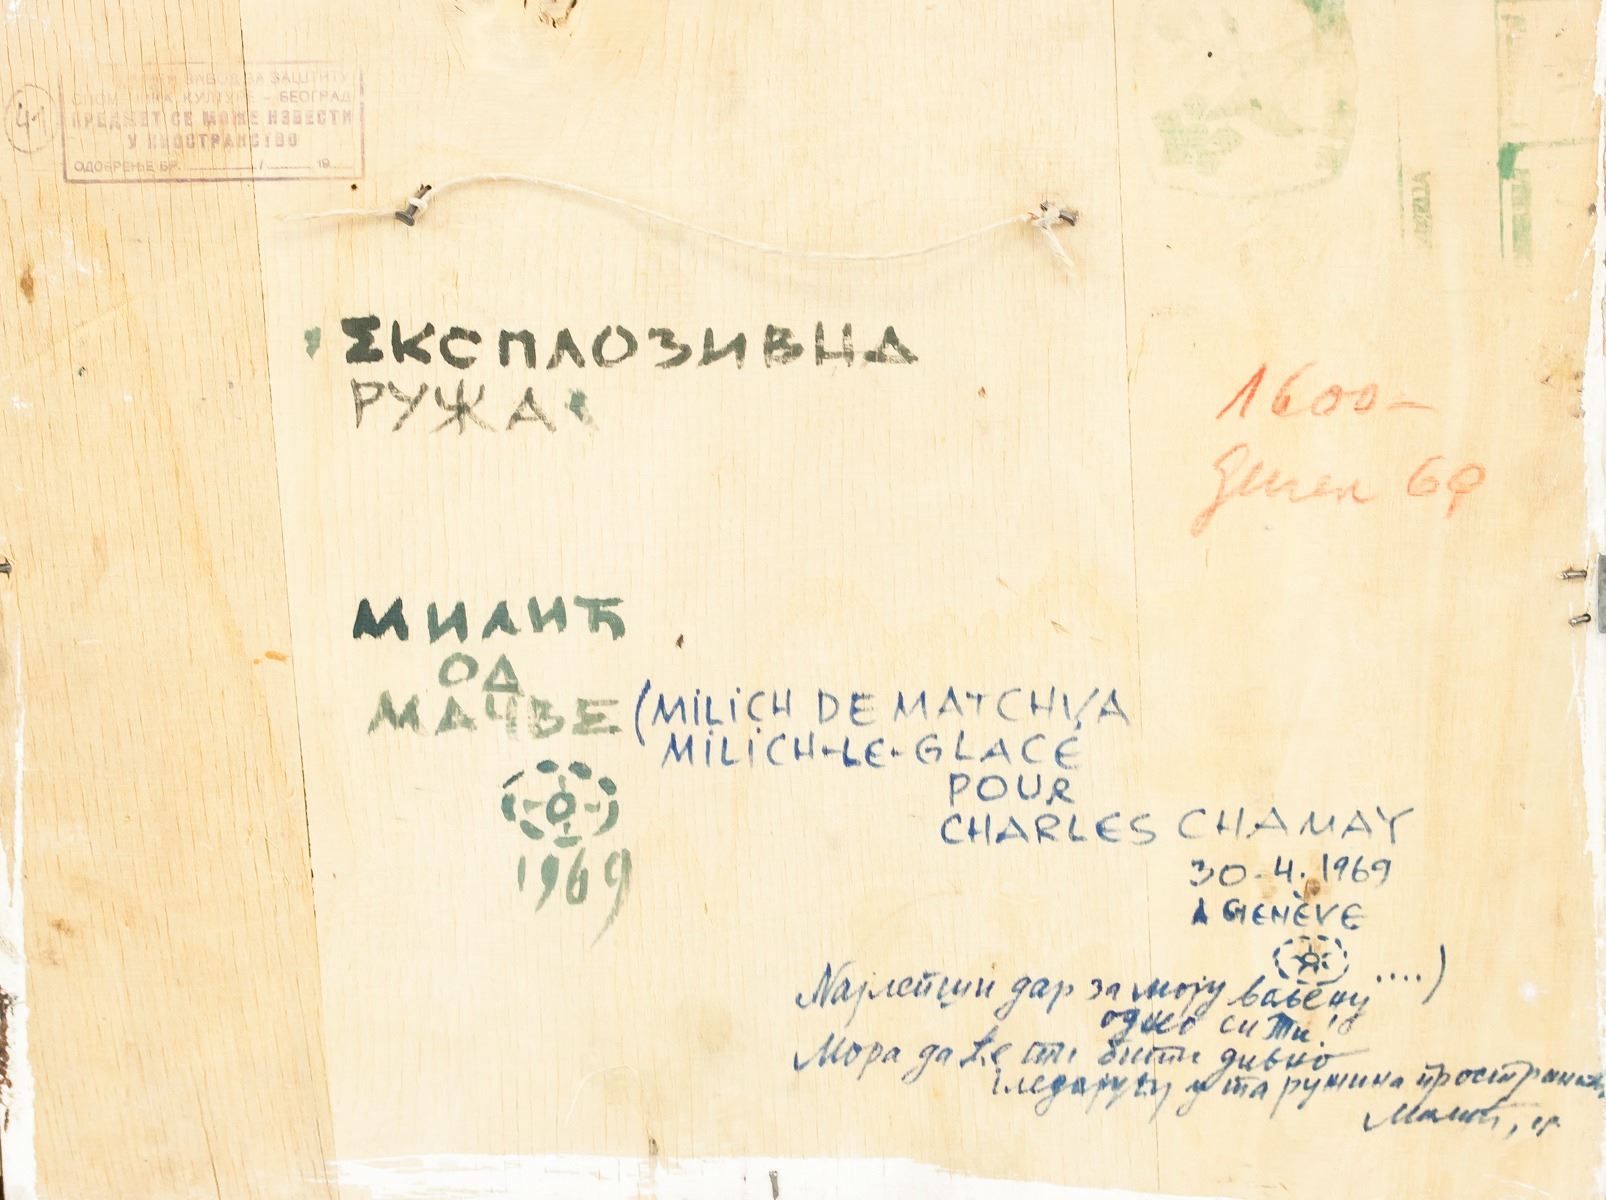 41
ЗАВОД ЗА ЗАШТИТУ
КУЛТУРЕ - БЕОГРАД
ПРЕДМЕТ СЕ МОЖЕ ИЗВЕСТИ
У ИНОСТРАНСТВО
ОДОБРЕЊЕ БР. ______/______ 19___
ЕКСПЛОЗИВНА
РУЖА
1600-
69
МИЛИЋ
ОД
МАЧВЕ
1969
(MILICH DE MATCHVA
MILICH-LE-GLACÉ
POUR
CHARLES CHAMAY
30-4.1969
A GENÈVE
....)
Најлепши дар за моју
однео си ти!
Мора да ће ти бити дивно
у та ружина
Милић,